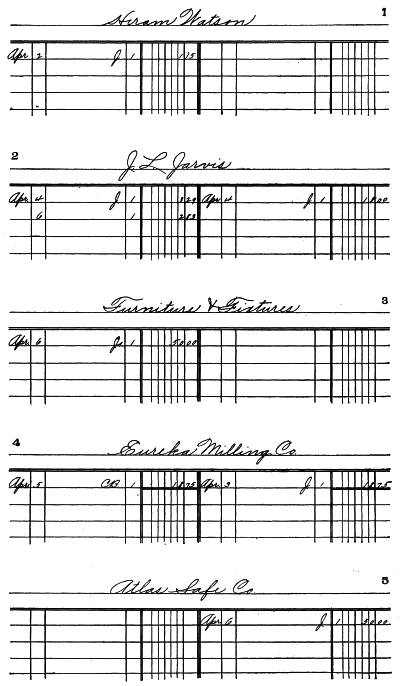 Hiram Watson 1
Apr 2 J 1 1 75
2
J. L. Jarvis
Apr. 4 J 1 8 20 Apr. 4 J 1 18 00
6 1 2 83
Furniture & Fixtures 3
Apr. 6 J 1 50 00
4
Eureka Milling Co.
Apr. 5 CB 1 18 75 Apr. 3 J 1 18 75
Atlas Safe Co 5
Apr 6 J 1 50 00